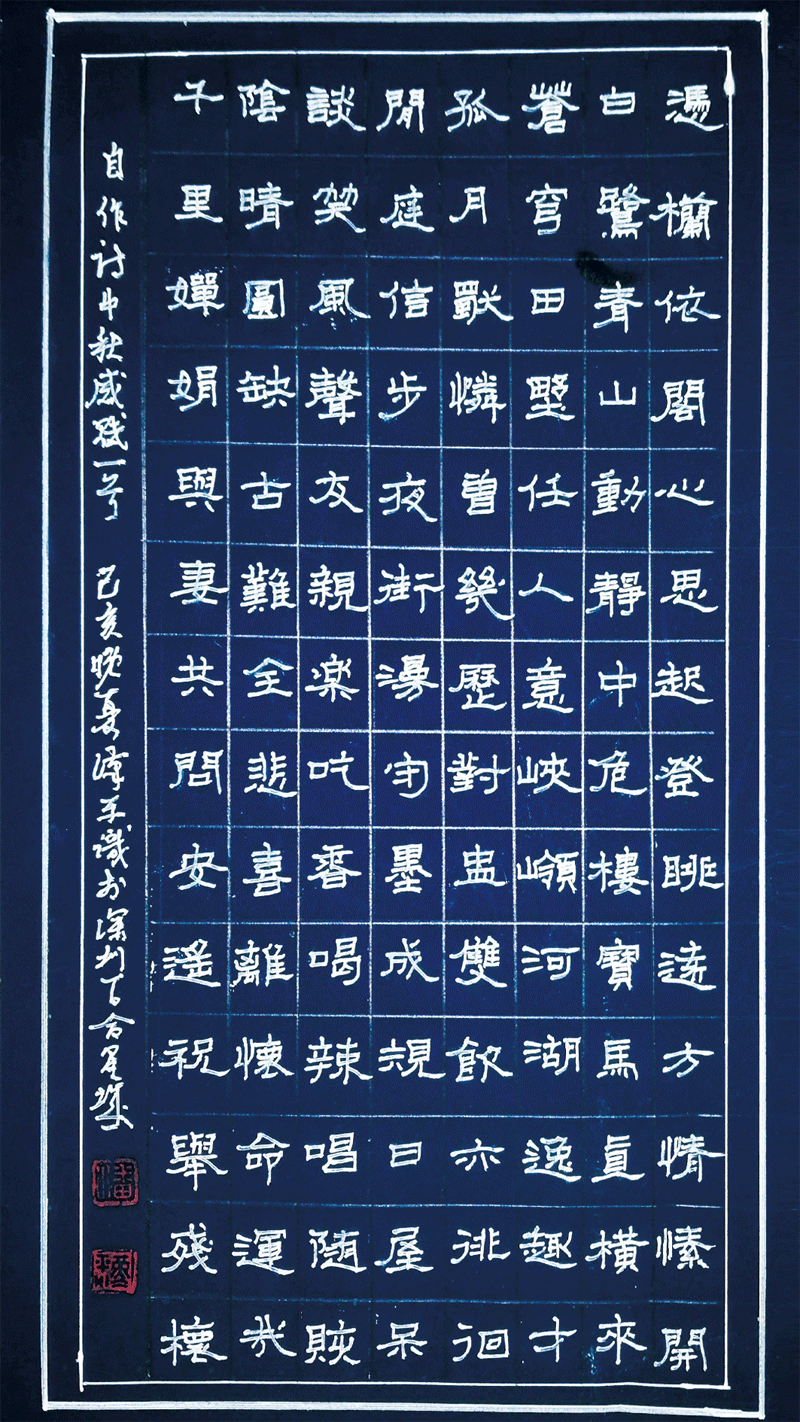 憑欄依閣心思起登眺遠方情愫開
白鷺青山動靜中危樓寶馬直橫來
蒼穹田墅任人意峽嶺河湖逸趣才
孤月獸憐曾幾歷對盅雙飲亦徘徊
閒庭信步夜街漫守墨成規日屋呆
談笑風聲友親樂吃香喝辣唱随賅
陰晴圓缺古難全悲喜離懷命運哉
千里嬋娟與妻共問安遙祝舉殘櫰
自作诗中秋感 一首 己亥晚夏 識於深圳百合星城